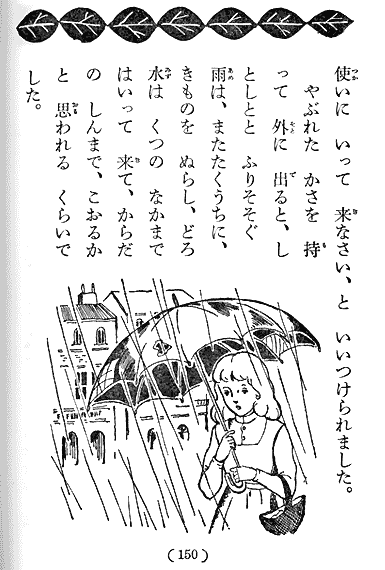 使いに いって 来なさい、と いいつけられました。
やぶれた かさを 持
って 外に 出ると、し
としとと ふりそそぐ
雨は、またたくうちに、
きものを ぬらし、どろ
水は くつの なかまで
はいって 来て、からだ
の しんまで、こおるか
と 思われる くらいで
した。
(150)